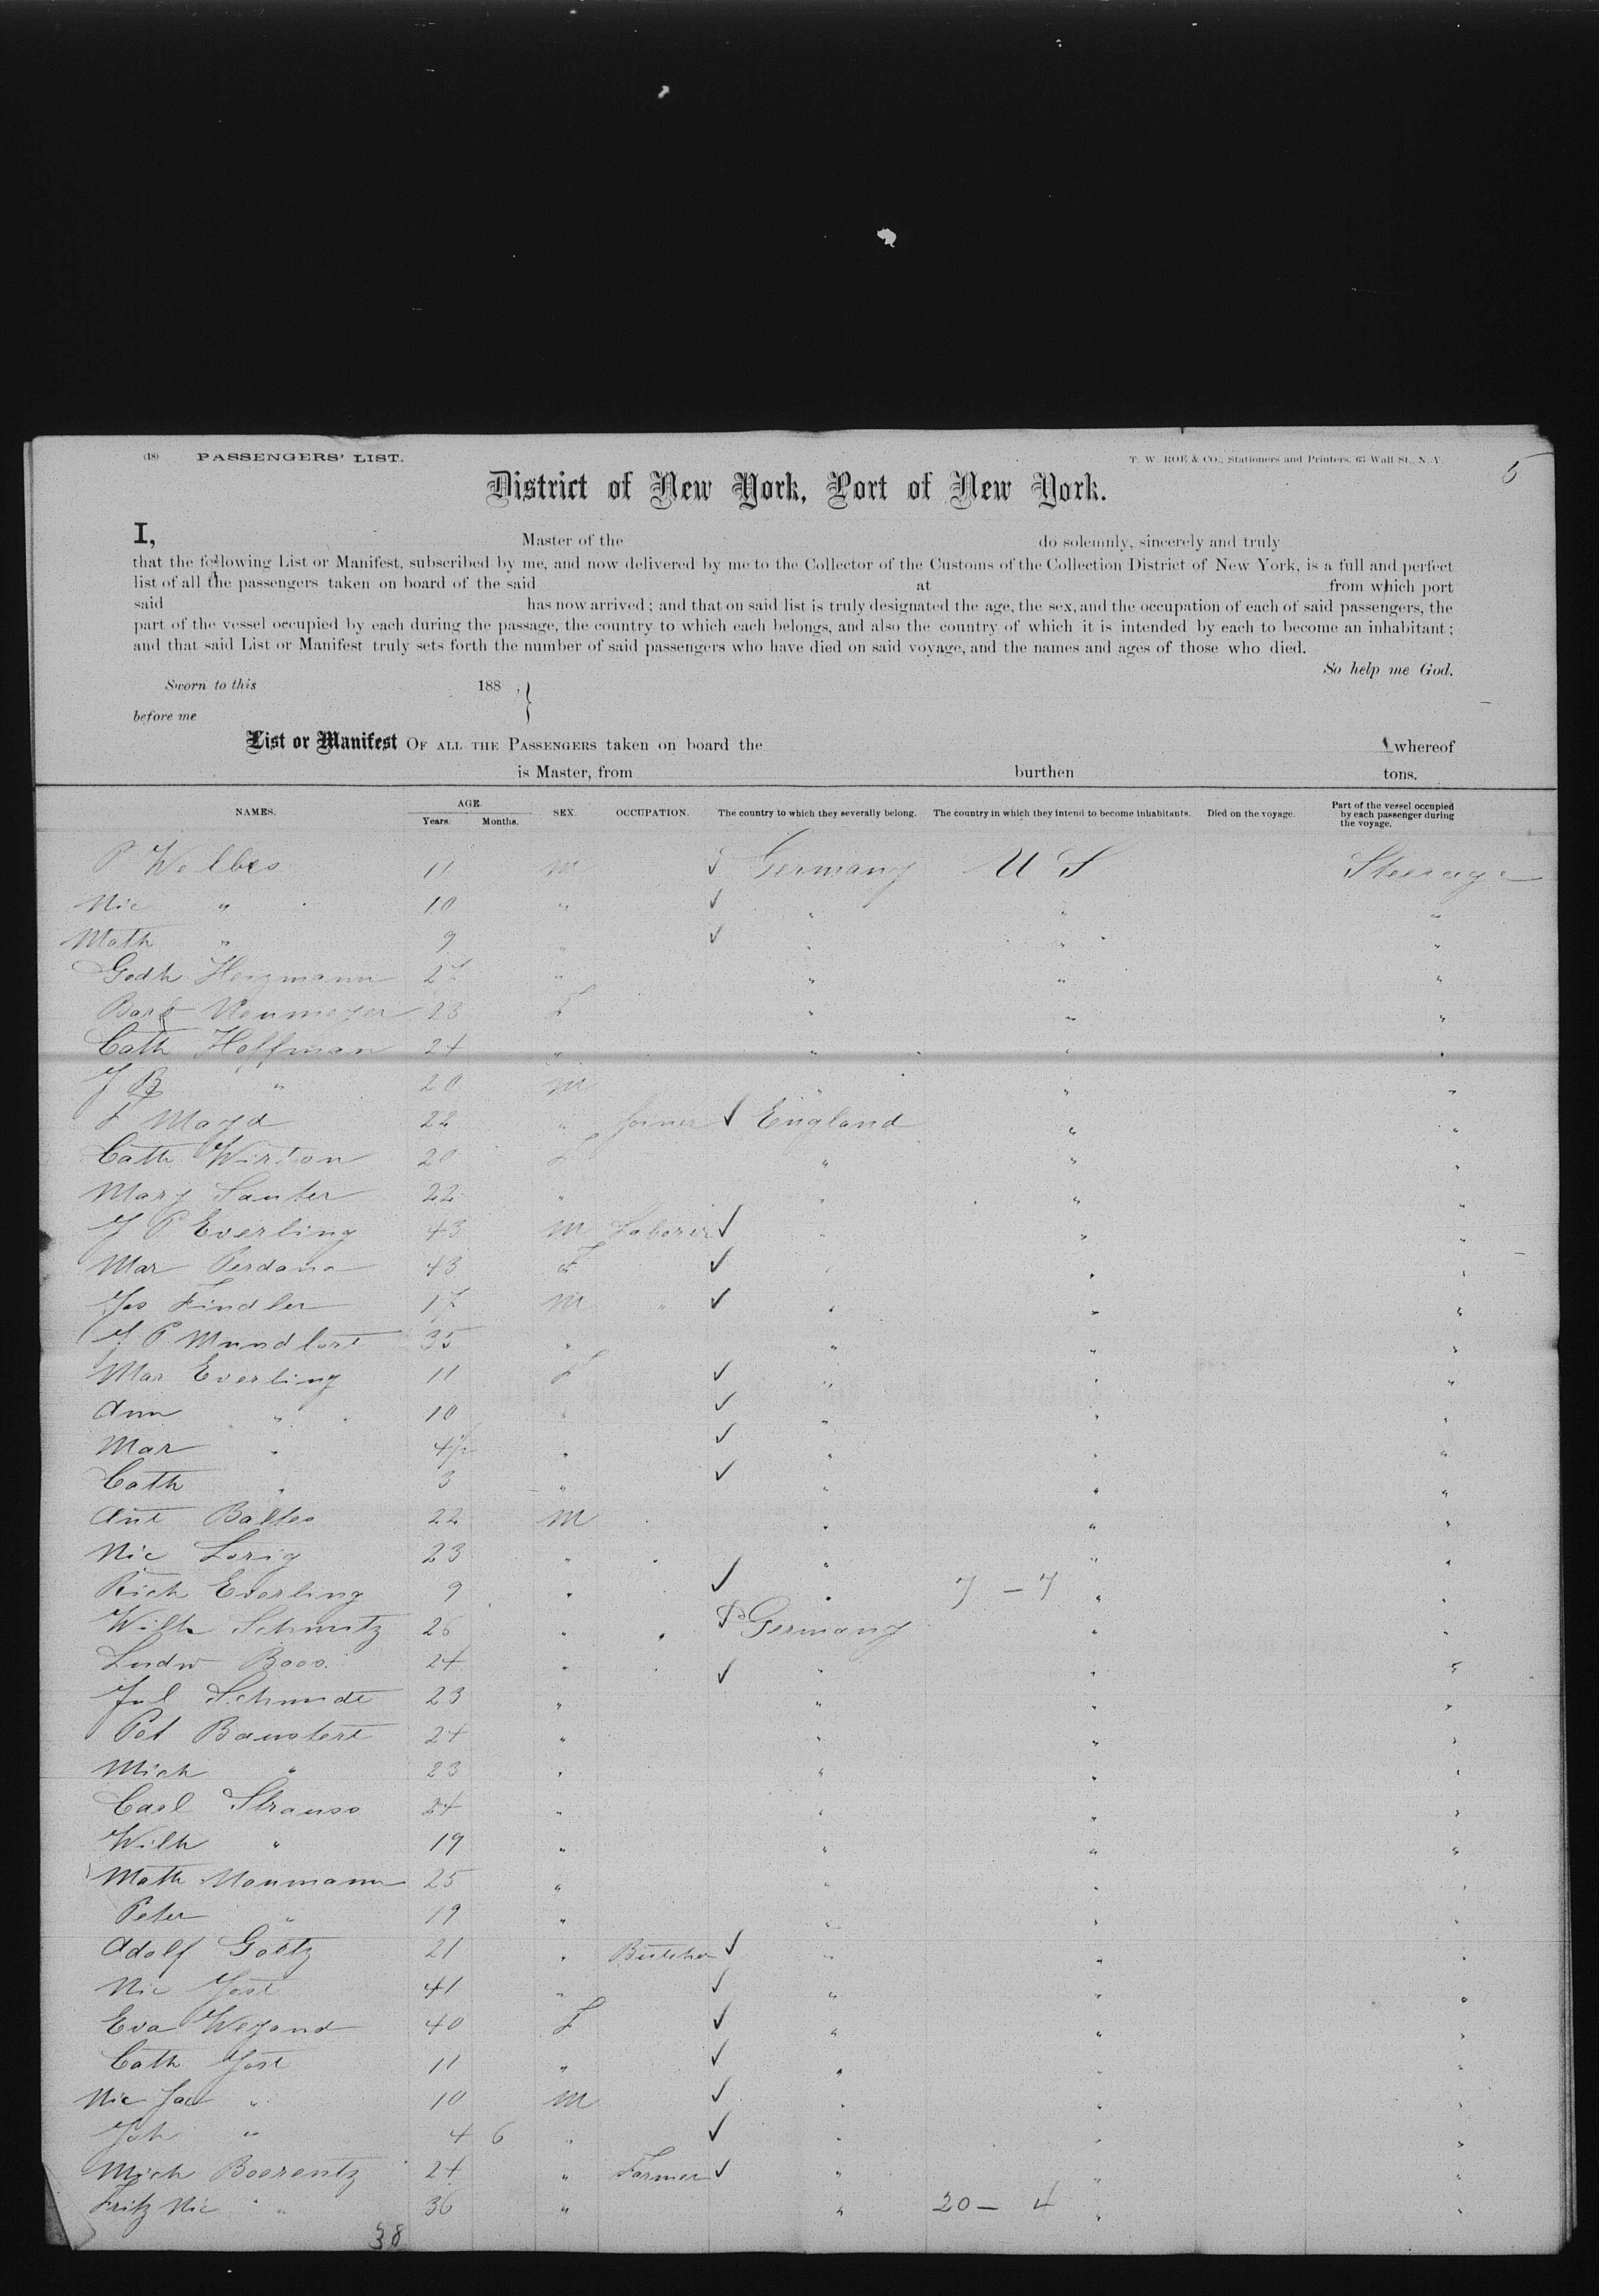 (18) PASSENGERS' LIST. T. W. ROE & CO., Stationers and Printers, 63 Wall St., N. Y. 5
District of New York, Port of New York.
I, Master of the do solemnly, sincerely and truly
that the following List or Manifest, subscribed by me, and now delivered by me to the Collector of the Customs of the Collection District of New York, is a full and perfect
list of all the passengers taken on board of the said at from which port
said has now arrived; and that on said list is truly designated the age, the sex, and the occupation of each of said passengers, the
part of the vessel occupied by each during the passage, the country to which each belongs, and also the country of which it is intended by each to become an inhabitant;
and that said List or Manifest truly sets forth the number of said passengers who have died on said voyage, and the names and ages of those who died.
So help me God.
Sworn to this 188 , }
before me
List or Manifest OF ALL THE PASSENGERS taken on board the whereof
is Master, from burthen tons.
NAMES. AGE. Years. Months. SEX. OCCUPATION. The country to which they severally belong. The country in which they intend to become inhabitants. Died on the voyage. Part of the vessel occupied by each passenger during the voyage.
P Welbes 11 m ✓ Germany U S Steerage
Nic " 10 " ✓ " " "
Math " 9 " ✓ " " "
Godh 27 " " " "
Barb Neumeyer 23 F " " "
Cath Hoffman 24 " " " "
J B " 20 m " " "
F Mayd 22 " Joiner ✓ England " "
Cath Wirton 20 F " " "
Mary Sauter 22 " " " "
J P Everling 43 m Laborer ✓ " " "
Mar Perdana 43 F ✓ " " "
Jos Findler 17 m " ✓ " " "
J P Mundlort 35 " " " "
Mar Everling 11 F ✓ " " "
Ann " 10 " ✓ " " "
Mar " 4½ " ✓ " " "
Cath " 3 " ✓ " " "
Ant Baltes 22 m " " "
Nic Lorig 23 " " " " "
Rich Everling 9 " ✓ " 7 – 7 " "
Wilh Schmitz 26 " " ✓ Germany " "
Ludw Boos 24 " " ✓ " " "
Jul Schmidt 23 " " " "
Pet Baustert 24 " " " "
Mich " 23 " " " "
Carl Strauss 24 " " " "
Wilh " 19 " " " "
Math Naumann 25 " " " "
Peter " 19 " " " "
Adolf Goltz 21 " Butcher ✓ " " "
Nic Jost 41 " ✓ " " "
Eva Weyand 40 F ✓ " " "
Cath Jost 11 " ✓ " " "
Nic Jac " 10 m ✓ " " "
Joh " 4 6 " ✓ " " "
Mich Boerentz 24 " Farmer ✓ " " "
Fritz Nic " 36 " " 20 – 4 " "
38